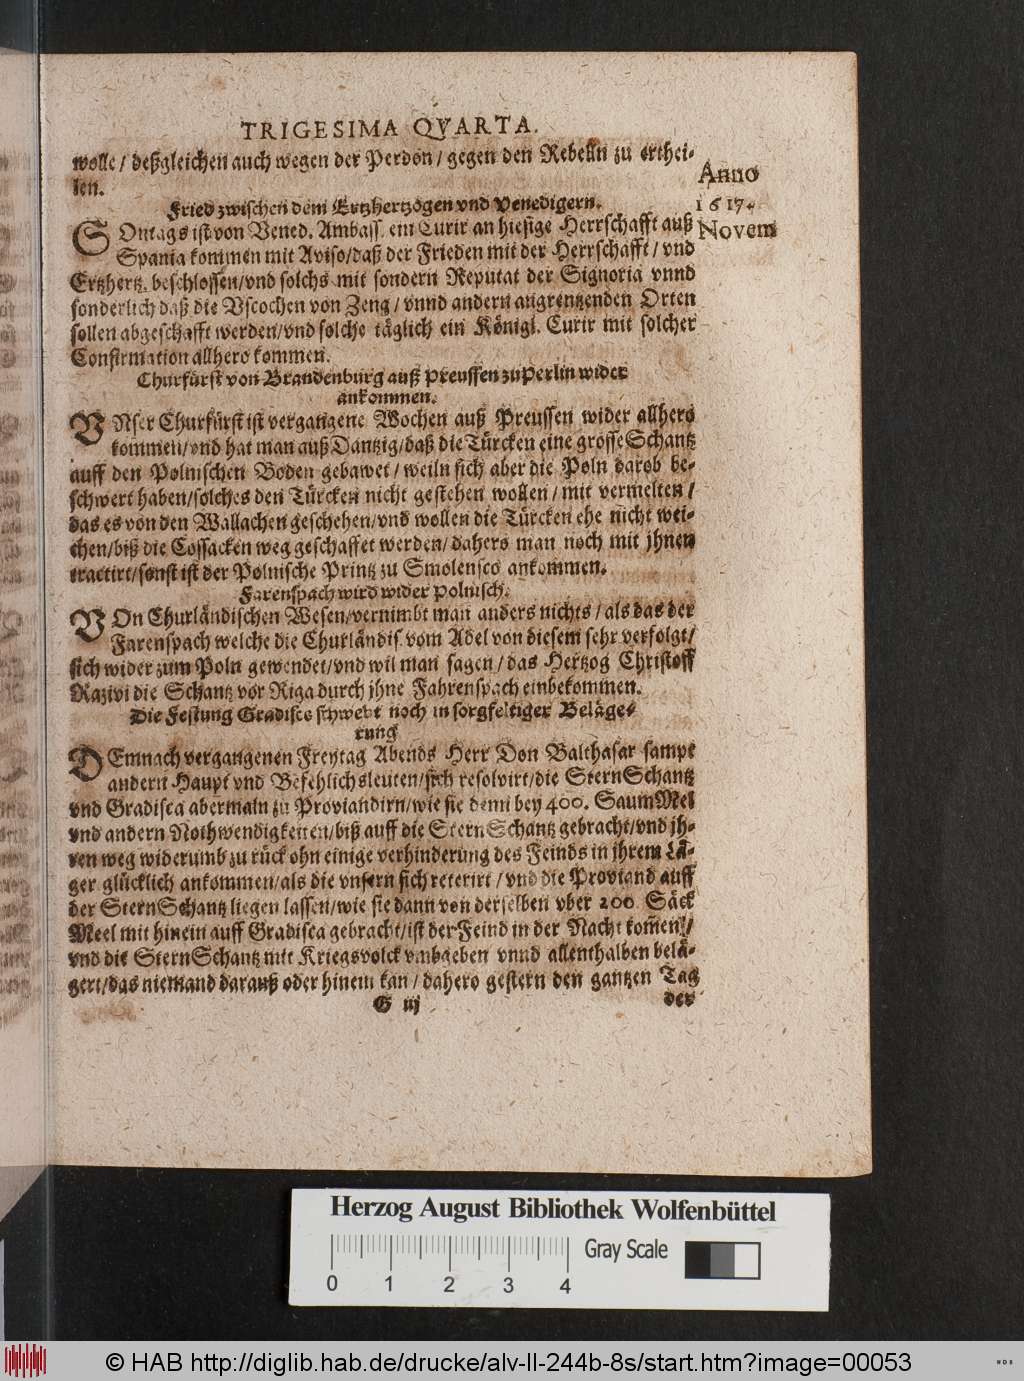 TRIGESIMA QVARTA.
wolle / deßgleichen auch wegen der Perdon / gegen den Rebelln zu erthei-
len.
Anno
1617.
Novem
Fried zwischen dem Ertzhertzogen vnd Venedigern.
SOntags ist von Vened. Ambass. ein Curir an hiesige Herrschafft auß
Spania kommen mit Aviso/daß der Frieden mit der Herrschafft / vnd
Ertzhertz. beschlossen/vnd solchs mit sondern Reputat der Signoria vnnd
sonderlich daß die Vscochen von Zeng / vnnd andern angrentzenden Orten
sollen abgeschafft werden/vnd solche täglich ein Königl. Curir mit solcher
Confirmation allhero kommen.
Churfürst von Brandenburg auß Preussen zu Perlin wider
ankommen.
VNser Churfürst ist vergangene Wochen auß Preussen wider allhero
kommen/vnd hat man auß Dantzig/daß die Türcken eine grosse Schantz
auff den Polnischen Boden gebawet / weiln sich aber die Poln darob be-
schwert haben/solches den Türcken nicht gestehen wollen / mit vermelten /
das es von den Wallachen geschehen/vnd wollen die Türcken ehe nicht wei-
chen/biß die Cossacken weg geschaffet werden/dahero man noch mit jhnen
tractirt/sonst ist der Polnische Printz zu Smolensco ankommen.
Farenspach wird wider Polnisch.
VOn Churländischen Wesen/vernimbt man anders nichts / als das der
Farenspach welche die Churländis. vom Adel von diesem sehr verfolgt/
sich wider zum Poln gewendet/vnd wil man sagen / das Hertzog Christoff
Razivi die Schantz vor Riga durch jhne Fahrenspach einbekommen.
Die Festung Gradisca schwebt noch in sorgfeltiger Beläge-
rung
DEmnach vergangenen Freytag Abends Herr Don Balthasar sampt
andern Haupt vnd Befehlichsleuten/sich resolvirt/die SternSchantz
vnd Gradisca abermaln zu Proviandirn/wie sie denn bey 400. SaumMel
vnd andern Nothwendigkeiten/biß auff die SternSchantz gebracht/vnd jh-
ren weg widerumb zu rück ohn einige verhinderung des Feinds in jhrem Lä-
ger glücklich ankommen/als die vnsern sich reterirt / vnd die Proviand auff
der SternSchantz liegen lassen/wie sie dann von derselben vber 200 Säck
Meel mit hinein auff Gradisca gebracht/ist der Feind in der Nacht kom̃en /
vnd die SternSchantz mit Kriegsvolck vmbgeben vnnd allenthalben belä-
gert/das niemand darauß oder hinein kan / dahero gestern den gantzen Tag
G iij
der
Herzog August Bibliothek Wolfenbüttel
0 1 2 3 4
Gray Scale
© HAB http://diglib.hab.de/drucke/alv-ll-244b-8s/start.htm?image=00053
HAB